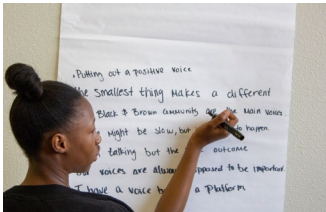 . Putting out a positive voice
the smallest thing makes a different
Black & Brown Community are the Main voices
Might be slow, but to happen
talking but the outcome
our voices are always supposed to be important
I have a voice a platform